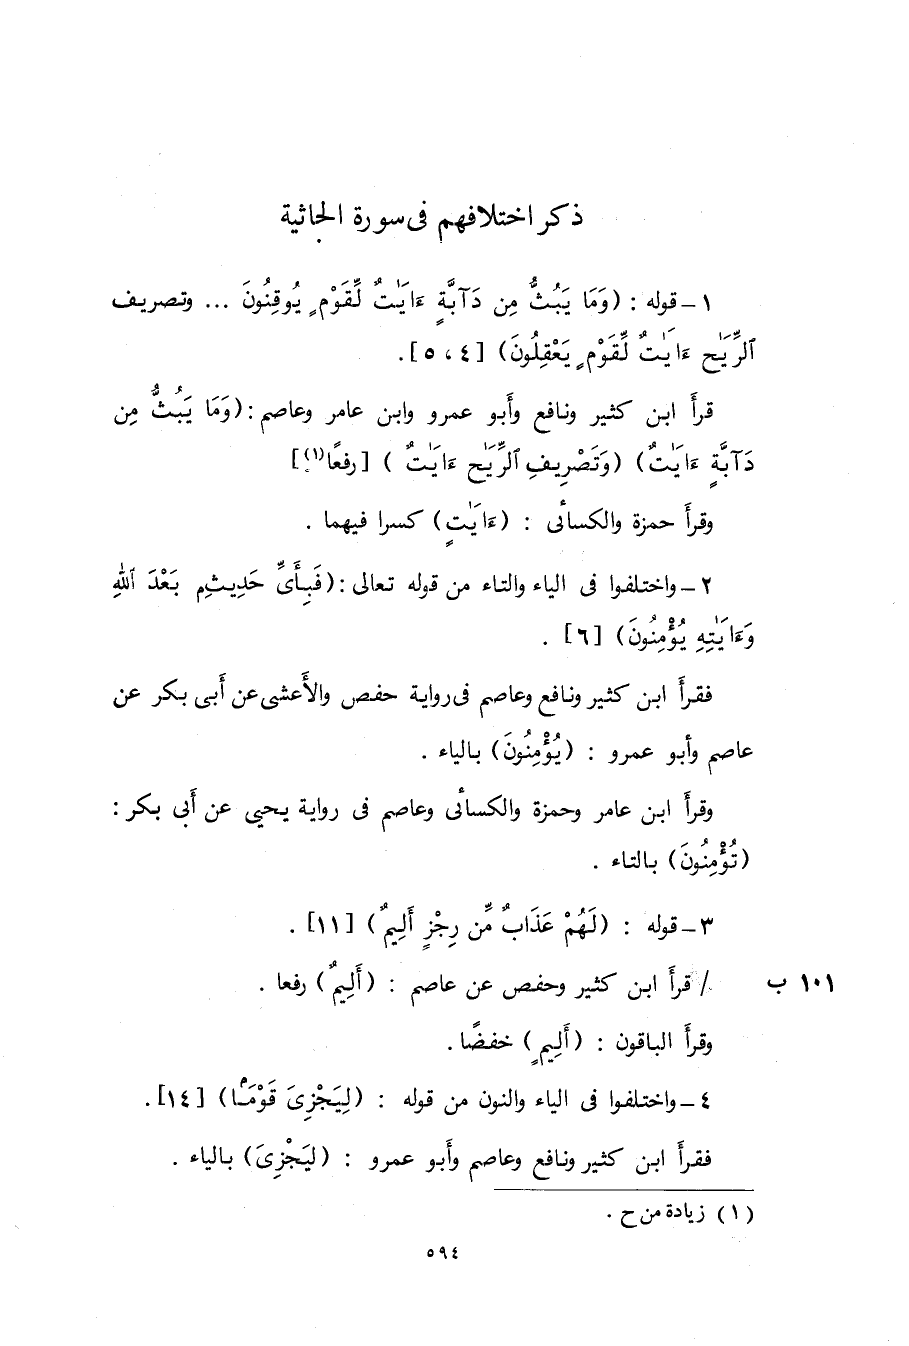 ذكر اختلافهم فى سورة الجاثية
١ – قوله : (وَمَا يَبُثُّ مِن دَآبَّةٍ ءَايَٰتٌ لِّقَوْمٍ يُوقِنُونَ ... وتصريف
ٱلرِّيَٰحِ ءَايَٰتٌ لِّقَوْمٍ يَعْقِلُونَ) [٤ ، ٥] .
قرأ ابن كثير ونافع وأبو عمرو وابن عامر وعاصم : (وَمَا يَبُثُّ مِن
دَآبَّةٍ ءَايَٰتٌ) (وَتَصْرِيفِ ٱلرِّيَٰحِ ءَايَٰتٌ ) [رفعًا(١)]
وقرأ حمزة والكسائى : (ءَايَٰتٍ) كسرا فيهما .
٢ – واختلفوا فى الياء والتاء من قوله تعالى : (فَبِأَىِّ حَدِيثٍۭ بَعْدَ ٱللَّهِ
وَءَايَٰتِهِ يُؤْمِنُونَ) [٦] .
فقرأ ابن كثير ونافع وعاصم فى رواية حفص والأعشى عن أبى بكر عن
عاصم وأبو عمرو : (يُؤْمِنُونَ) بالياء .
وقرأ ابن عامر وحمزة والكسائى وعاصم فى رواية يحيى عن أبى بكر :
(تُؤْمِنُونَ) بالتاء .
٣ – قوله : (لَهُمْ عَذَابٌ مِّن رِجْزٍ أَلِيمٌ) [١١] .
/ قرأ ابن كثير وحفص عن عاصم : (أَلِيمٌ) رفعا . ١٠١ ب
وقرأ الباقون : (أَلِيمٍ) خفضًا .
٤ – واختلفوا فى الياء والنون من قوله : (لِيَجْزِىَ قَوْمَۢا) [١٤] .
فقرأ ابن كثير ونافع وعاصم وأبو عمرو : (ليَجْزِىَ) بالياء .
(١) زيادة من ح .
٥٩٤